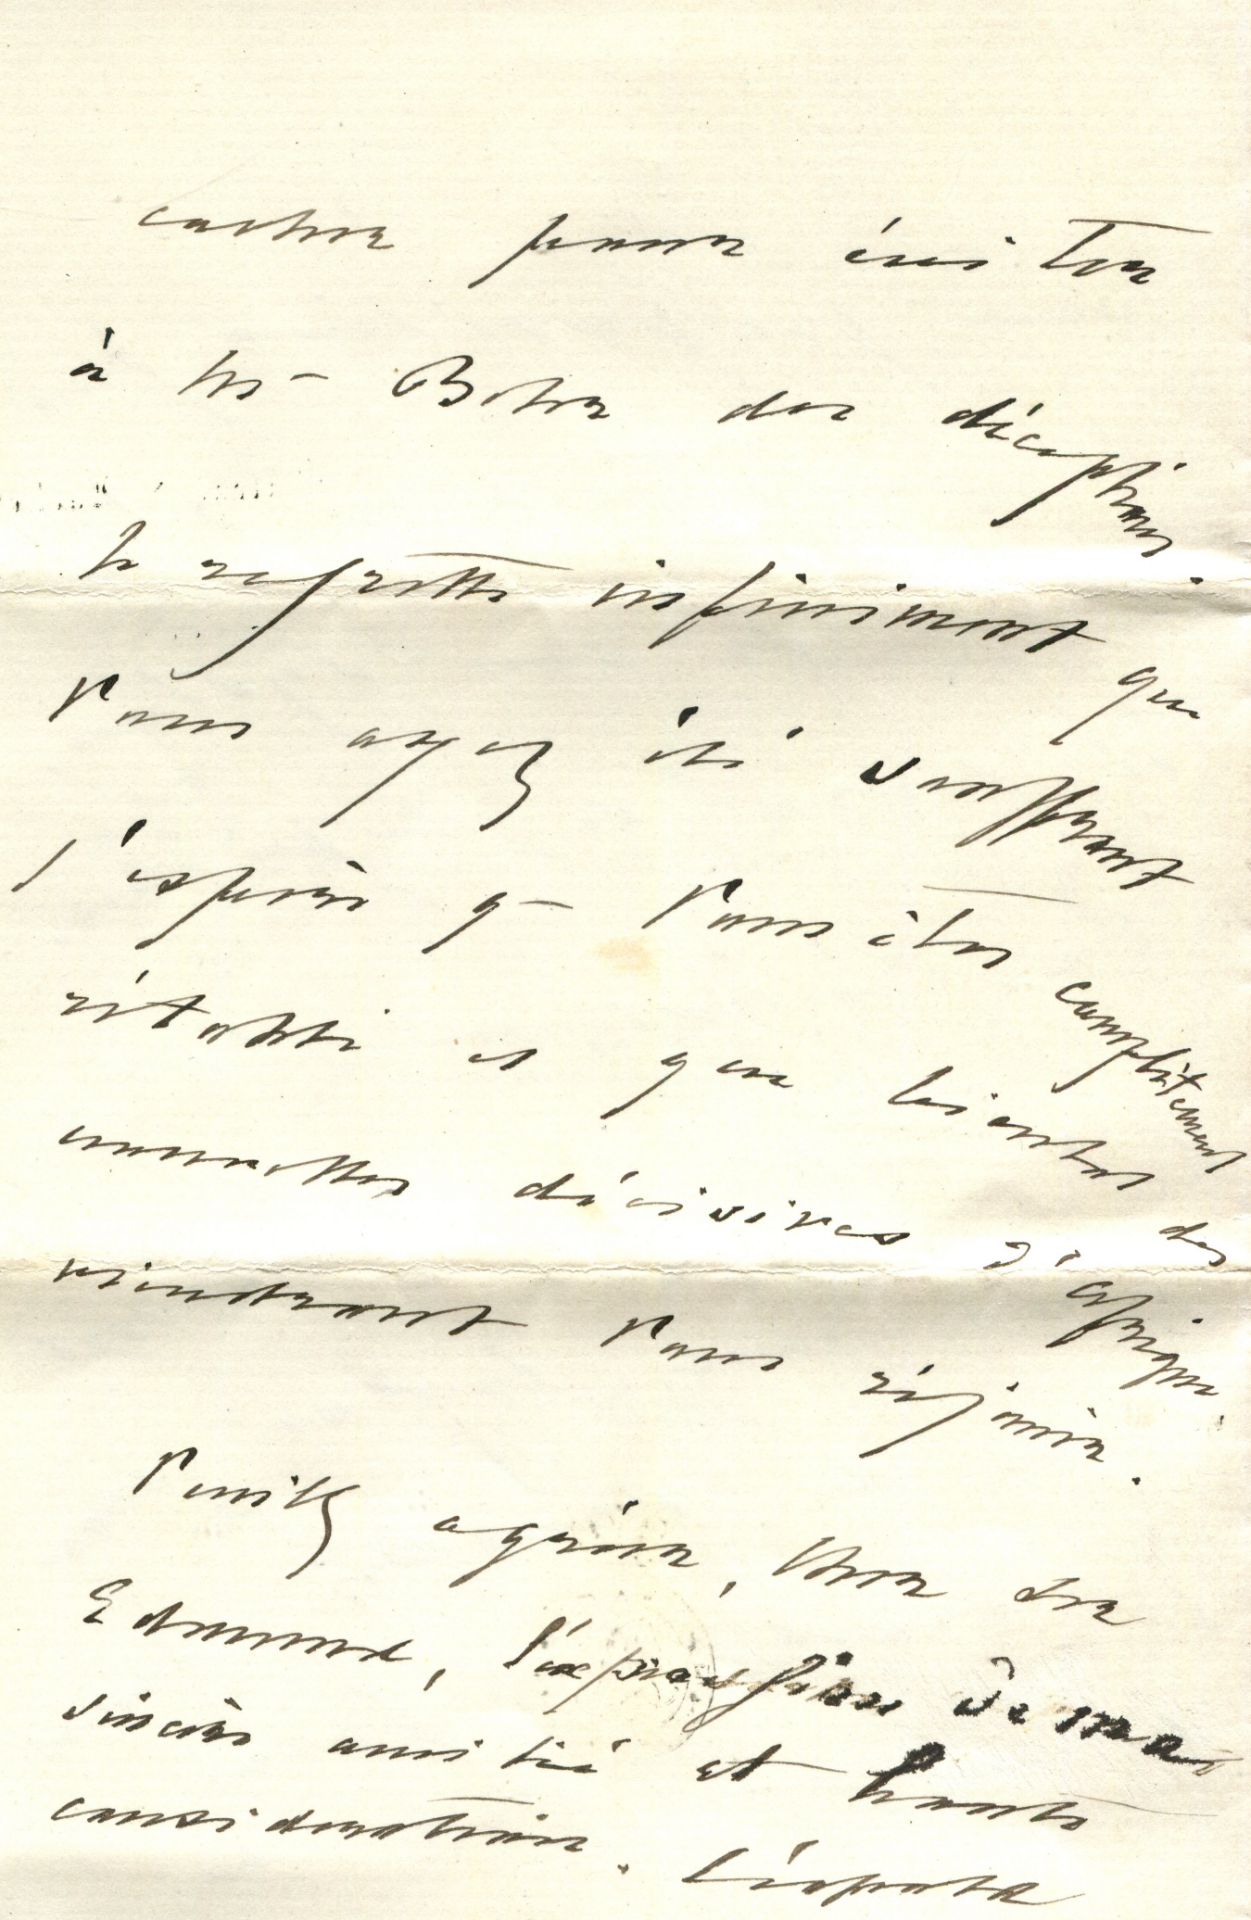 cacher pour éviter
à Mr Botha des déceptions.
Je regrette infiniment que
Vous ayez été souffrant
j'espère q- Vous êtes complètement
rétabli et que bientot des
nouvelles décisives d'afrique
viendront Vous réjouir.
Veuillez agréer, cher Sir
Edmund, l'expression de ma
sincère amitié et haute
considération. Léopold